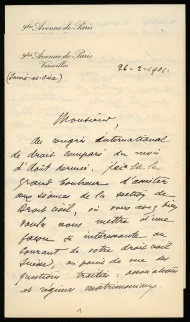 9bis Avenue de Paris
9bis Avenue de Paris
Versailles
(Seine-et-Oise)
26-2-1901.
Monsieur,
Au congrès international
de droit comparé du mois
d'Août dernier, j'ai eu le
grand bonheur d'assister
aux séances de la section de
Droit civil, où vous avez bien
voulu nous mettre d'une
façon si intéressante au
courant de votre droit civil
Suisse, au point de vue des
questions traitées : successions
et régimes matrimoniaux.